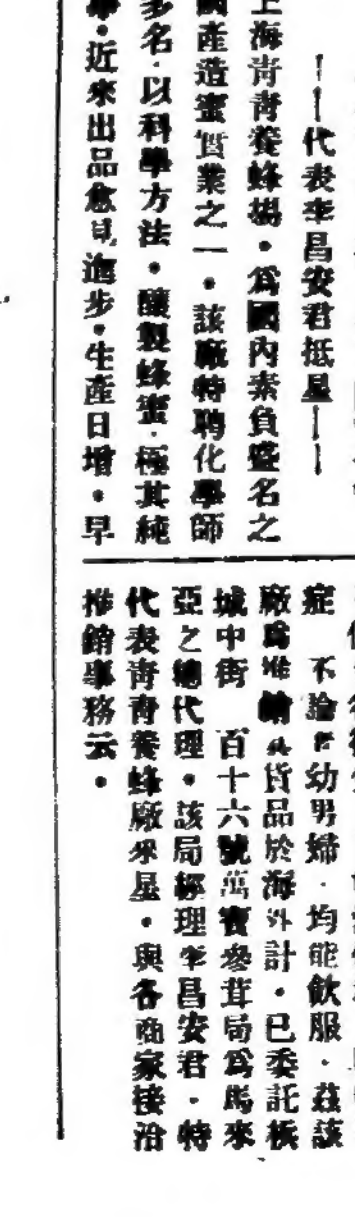 代表李昌安君抵星
上海青青養蜂場・為國內素負盛名之
國產造蜜實業之一・該廠特聘化學師
多名・以科學方法・釀製蜂蜜・極其純
・近來出品愈見進步・生產日增・早
症 不論老幼男婦・均能飲服・茲該
廠為推銷其貨品於海外計・已委託檳
城中街 百十六號萬寶參茸局為馬來
亞之總代理・該局經理李昌安君・特
代表青青養蜂廠來星・與各商家接洽
推銷事務云・